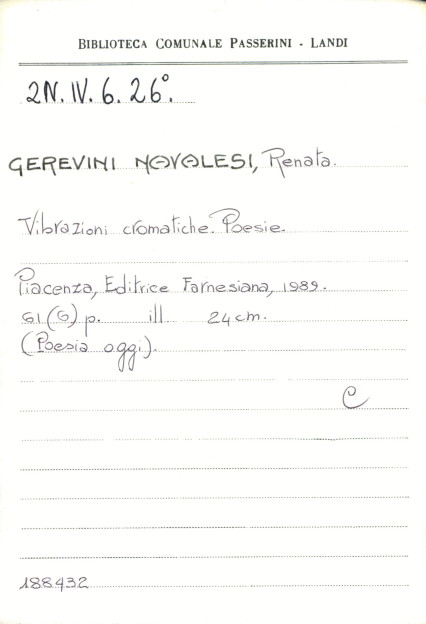 BIBLIOTECA COMUNALE PASSERINI - LANDI
2N. IV. 6. 26°.
GEREVINI NAVALESI, Renata.
Vibrazioni cromatiche. Poesie.
Piacenza, Editrice Farnesiana, 1989.
61 (6) p. ill 24 cm.
(Poesia oggi).
C
188432